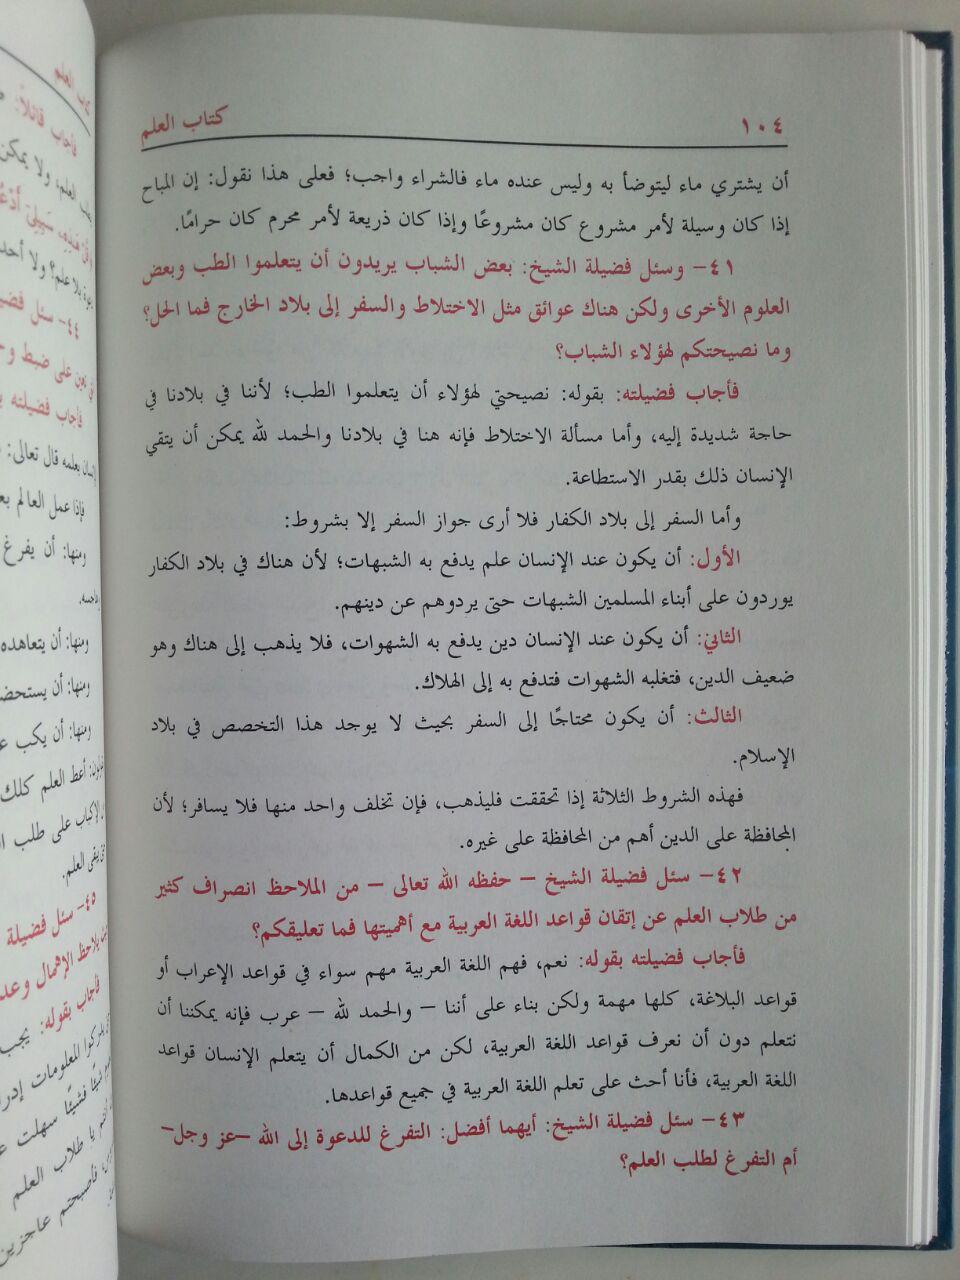 ١٠٤ كتاب العلم
أن يشتري ماء ليتوضأ به وليس عنده ماء فالشراء واجب؛ فعلى هذا نقول: إن المباح
إذا كان وسيلة لأمر مشروع كان مشروعًا وإذا كان ذريعة لأمر محرم كان حرامًا.
٤١- وسئل فضيلة الشيخ: بعض الشباب يريدون أن يتعلموا الطب وبعض
العلوم الأخرى ولكن هناك عوائق مثل الاختلاط والسفر إلى بلاد الخارج فما الحل؟
وما نصيحتكم لهؤلاء الشباب؟
فأجاب فضيلته: بقوله: نصيحتي لهؤلاء أن يتعلموا الطب؛ لأننا في بلادنا في
حاجة شديدة إليه، وأما مسألة الاختلاط فإنه هنا في بلادنا والحمد لله يمكن أن يتقي
الإنسان ذلك بقدر الاستطاعة.
وأما السفر إلى بلاد الكفار فلا أرى جواز السفر إلا بشروط:
الأول: أن يكون عند الإنسان علم يدفع به الشبهات؛ لأن هناك في بلاد الكفار
يوردون على أبناء المسلمين الشبهات حتى يردوهم عن دينهم.
الثاني: أن يكون عند الإنسان دين يدفع به الشهوات، فلا يذهب إلى هناك وهو
ضعيف الدين، فتغلبه الشهوات فتدفع به إلى الهلاك.
الثالث: أن يكون محتاجًا إلى السفر بحيث لا يوجد هذا التخصص في بلاد
الإسلام.
فهذه الشروط الثلاثة إذا تحققت فليذهب، فإن تخلف واحد منها فلا يسافر؛ لأن
المحافظة على الدين أهم من المحافظة على غيره.
٤٢- سئل فضيلة الشيخ – حفظه الله تعالى – من الملاحظ انصراف كثير
من طلاب العلم عن إتقان قواعد اللغة العربية مع أهميتها فما تعليقكم؟
فأجاب فضيلته بقوله: نعم، فهم اللغة العربية مهم سواء في قواعد الإعراب أو
قواعد البلاغة، كلها مهمة ولكن بناء على أننا – والحمد لله – عرب فإنه يمكننا أن
نتعلم دون أن نعرف قواعد اللغة العربية، لكن من الكمال أن يتعلم الإنسان قواعد
اللغة العربية، فأنا أحث على تعلم اللغة العربية في جميع قواعدها.
٤٣- سئل فضيلة الشيخ: أيهما أفضل: التفرغ للدعوة إلى الله –عز وجل–
أم التفرغ لطلب العلم؟
فأجاب قائلاً:
العلم، ولا يمكن
سَبِيلِي
بلا علم؟ ولا أحد
٤٤- سئل
على ضبط
فأجاب فضيلته
بعلمه قال تعالى:
فإذا عمل العالم
ومنها: أن يفرغ
ومنها: أن يتعاهده
ومنها: أن
ومنها: أن يكب
أعط العلم كلك
الإكباب على طلب
يبقى العلم.
٤٥- سئل فضيلة
يلاحظ الإهمال
فأجاب بقوله: يجب
المعلومات
شيئًا فشيئًا سهلت
يا طلاب العلم
فأصبحتم عاجزين